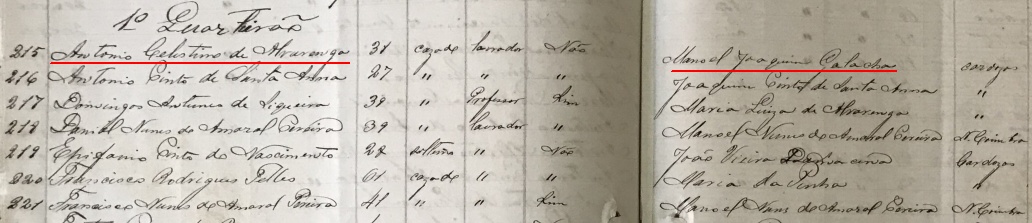 1º Quarteirão
215 Antonio Celestino de Alvarenga 31 cazado lavrador Não Manoel Joaquim Cardozo
216 Antonio Pinto de Santa Anna 27 " " " Joaquim Pinto de Santa Anna "
217 Domingos Antunes de Siqueira 39 " Professor Sim Maria Luiza de Alvarenga "
218 Daniel Nunes do Amaral Pereira 39 " lavrador " Manoel Nunes do Amaral Pereira N. Coimbra
219 Epifanio Pinto do Nascimento 28 solteiro " Não João Vieira Cardozos
220 Francisco Rodrigues Telles 61 cazado " " Maria da Penha "
221 Francisco Nunes do Amaral Pereira 41 " " Sim Manoel Nunes do Amaral Pereira N. Coimbra